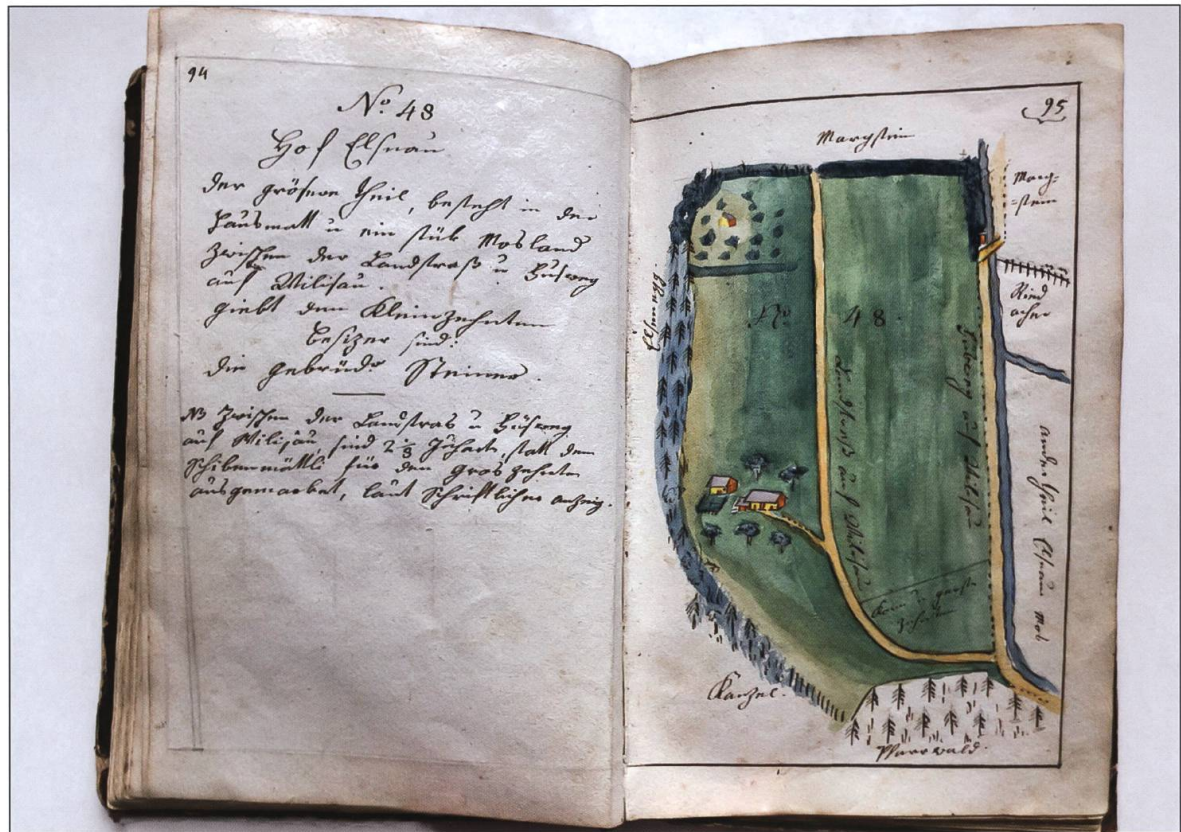 94
No 48
Hof Elsnau
der grösere Theil, besteht in der
Hausmatt u ein stük Mosland
zwischen der Landstraß u Husweg
auf Wilisau.
giebt den Kleinzehnten
Besizer sind:
die gebrüder Steiner.
NB zwischen der Landstras u Husweg
auf Wilisau, sind 2 1/8 Jucharte, statt dem
Schibenmättli für den Groszehnten
ausgemarket, laut Schriftlicher anzeig.
95
Marchstein
March-
-stein
Ried
acher
No 48.
Landstraß auf Wilisau
auf Wilisau
ander theil Elsnau Mos
Korn u gersten
Zehnten
Kanzel.
Pfarrwald.